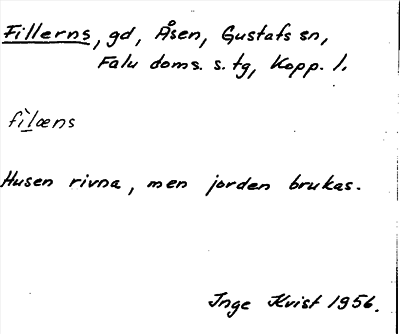 Fillerns, gd, Åsen, Gustafs sn,
Falu doms. s. tg, Kopp. l.
fìlæns
Husen rivna, men jorden brukas.
Inge Kvist 1956.